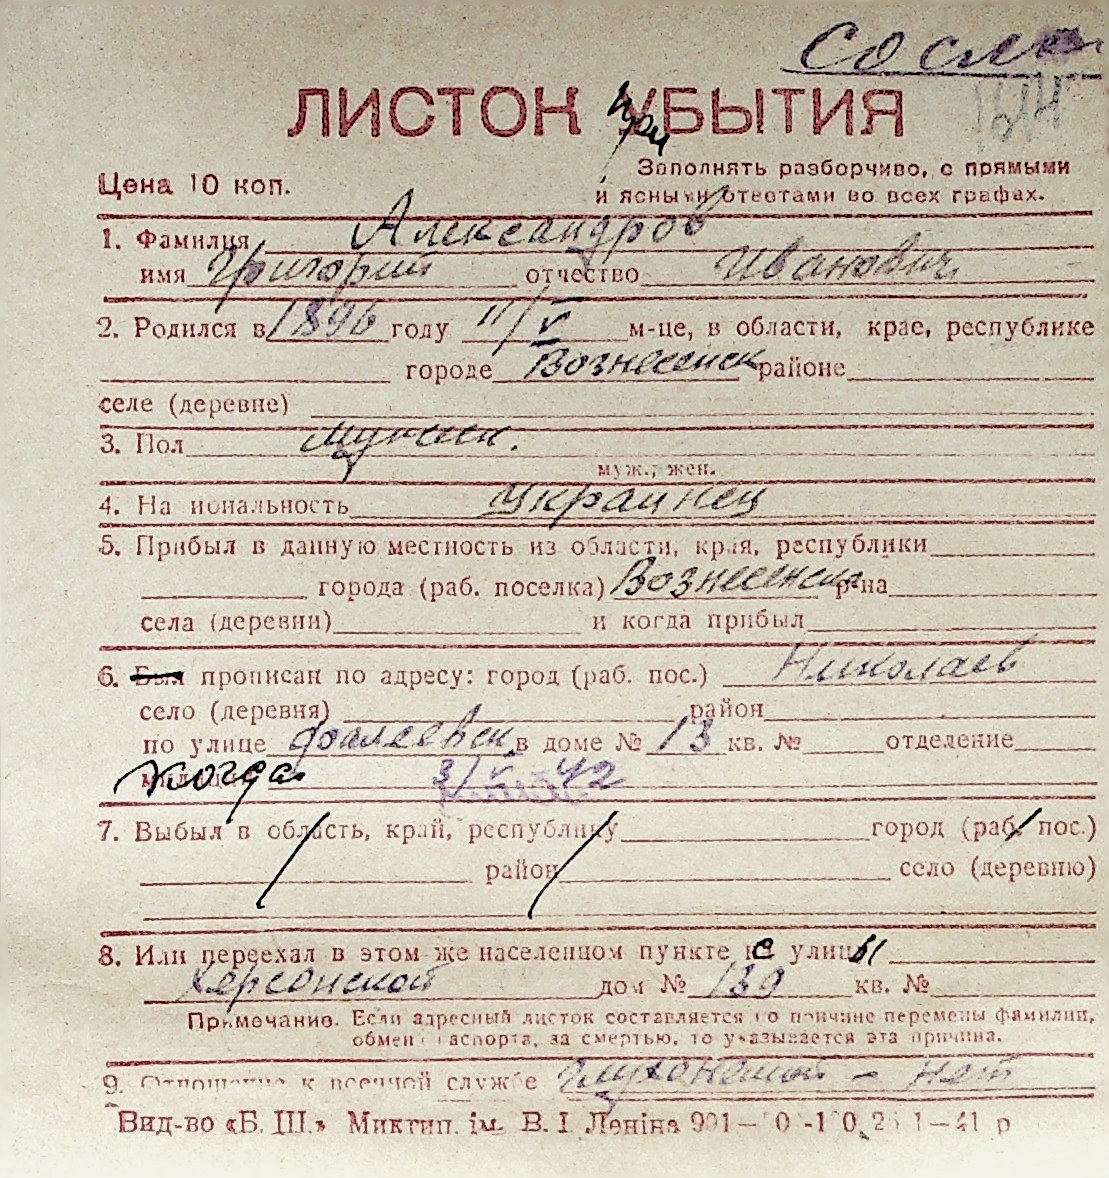 СО сл
ЛИСТОК УБЫТИЯ
При
Заполнять разборчиво, с прямыми
Цена 10 коп.
и ясными ответами во всех графах.
1. Фамилия Александров
имя Григорий отчество Иванович
2. Родился в 1896 году 11/V м-це, в области, крае, республике
городе Вознесенск районе
селе (деревне)
3. Пол мужск.
муж., жен.
4. Национальность Украинец
5. Прибыл в данную местность из области, края, республики
города (раб. поселка) Вознесенска р-на
села (деревни) и когда прибыл
6. Был прописан по адресу: город (раб. пос.) Николаев
село (деревня) район
по улице Фалеевск. в доме № 13 кв. № отделение
милиции когда 3/V 42
7. Выбыл в область, край, республику город (раб. пос.)
район село (деревню)
8. Или переехал в этом же населенном пункте с улицы
Херсонской дом № 139 кв. №
Примечание. Если адресный листок составляется по причине перемены фамилии,
обмена паспорта, за смертью, то указывается эта причина.
9. Отношение к военной службе Глухонемой – нет
Вид-во «Б. Ш.» Миктип. ім. В. І. Леніна 901